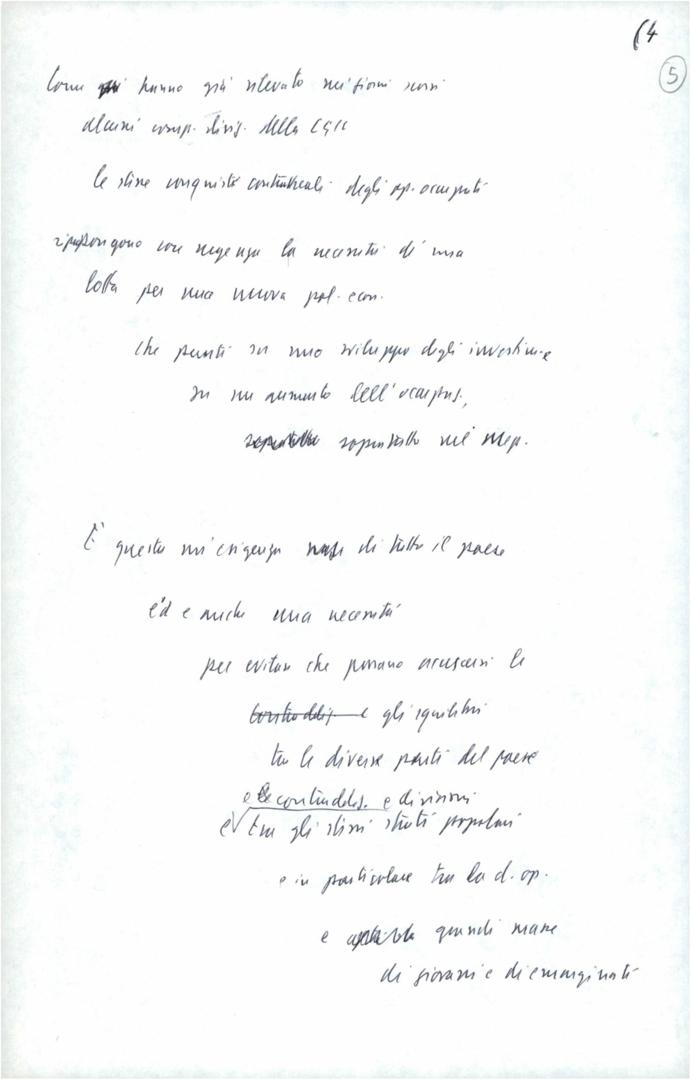 (4
5
Come hanno già rilevato nei giorni scorsi
alcuni comp. dirig. della CGIL
le stesse conquiste contrattuali degli op. occupati
ripropongono con urgenza la necessità di una
lotta per una nuova pol. econ.
che punti su uno sviluppo degli investim.
su un aumento dell'occupaz.,
soprattutto nel Mezz.
È questa un'esigenza di tutto il paese
ed è anche una necessità
per evitare che possano accrescersi le
contraddiz. e gli squilibri
tra le diverse parti del paese
e le contraddiz. e divisioni
e tra gli stessi strati popolari
e in particolare tra la cl. op.
e grandi masse
di giovani e di emarginati